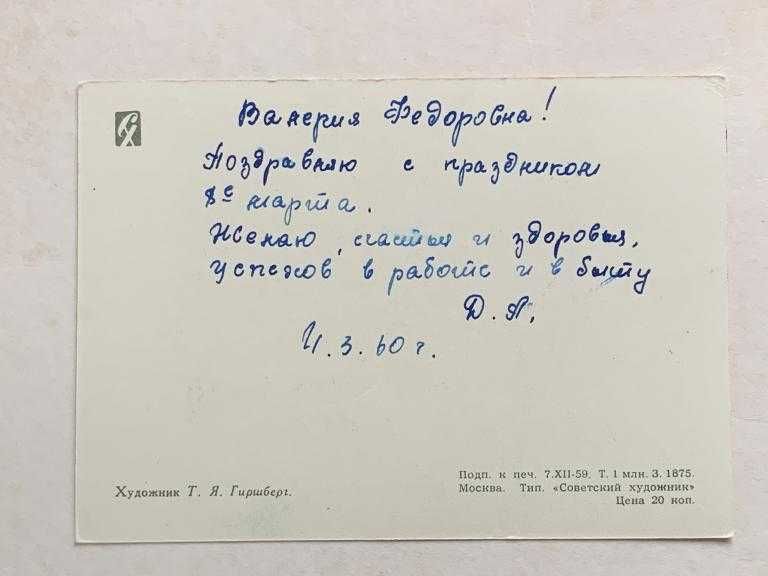 Валерия Федоровна!
Поздравляю с праздником
8е марта.
Желаю, счастья и здоровья,
успехов в работе и в быту
Д. А.
4. 3. 60 г.
Художник Т. Я. Гиршберг.
Подп. к печ. 7.XII-59. Т. 1 млн. З. 1875.
Москва. Тип. «Советский художник»
Цена 20 коп.